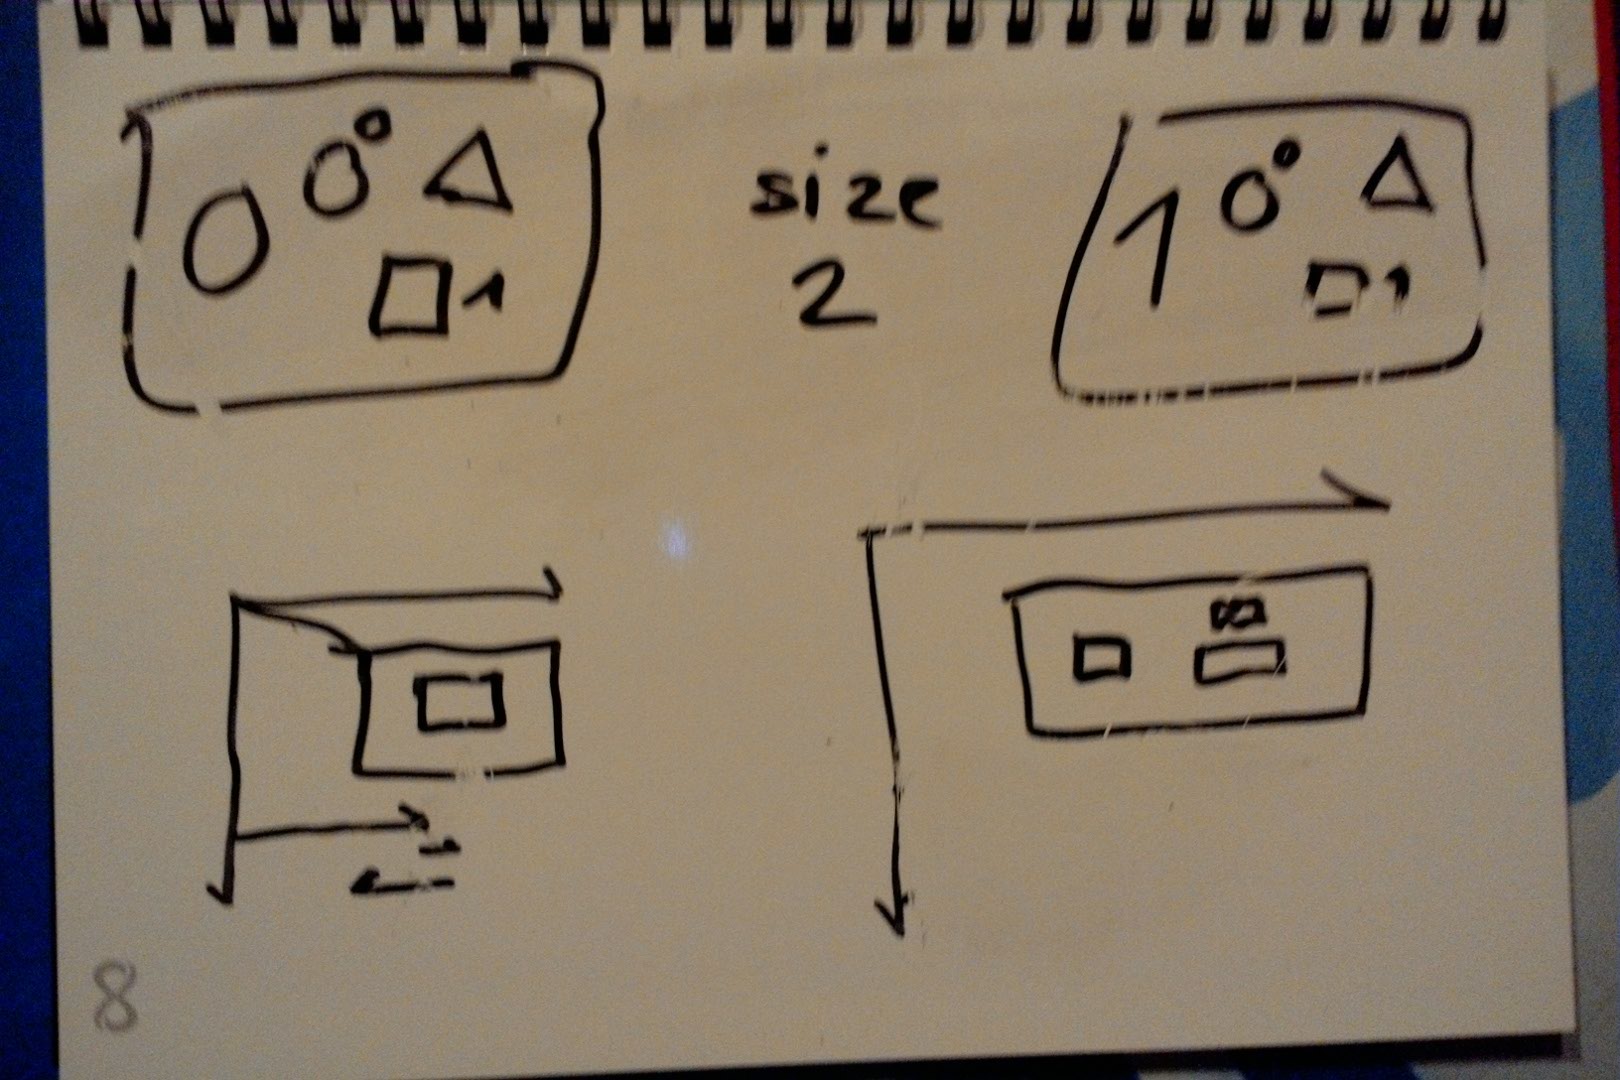 0 0° △
□ 1
size
2
1 0° △
□ 1
8